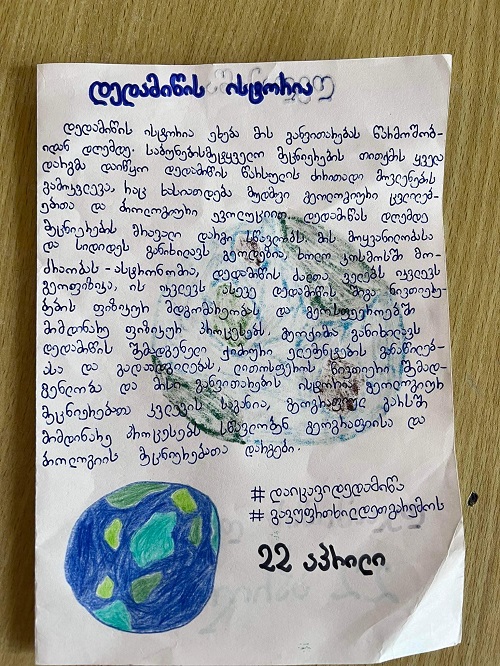 დედამიწის ისტორია
დედამიწის ისტორია ეხება მის განვითარებას წარმოშობ-
იდან დღემდე. საბუნებისმეტყველო მეცნიერების თითქმის ყველა
დარგმა დაიწყო დედამიწის წარსულის ძირითადი მოვლენების
გამოკვლევა, რაც ხასიათდება მუდმივ გეოლოგიური ცვლილებ-
ებითა და ბიოლოგიური ევოლუციით. დედამიწას დღემდე
მეცნიერების მრავალი დარგი სწავლობს. მის მოყვანილობასა
და სიდიდეს განიხილავს გეოდეზია, ხოლო კოსმოსში მო-
ძრაობას - ასტრონომია, დედამიწის ძალთა ველებს იკვლევს
გეოფიზიკა, ის იკვლევს ასევე დედამიწის შიგა ნივთიერე-
ბების ფიზიკურ მდგომარეობას და გეოსფეროებში
მიმდინარე ფიზიკურ პროცესებს. გეოქიმია განიხილავს
დედამიწის შემადგენელი ქიმიური ელემენტების განაწილებ-
ასა და გადაადგილებას, ლითოსფეროს ნივთიერი შემად-
გენლობა და მისი განვითარების ისტორია გეოლოგიურ
მეცნიერებათა კვლევის საგანია, გეოგრაფიულ გარსში
მიმდინარე პროცესებს სწავლობენ გეოგრაფიისა და
ბიოლოგიის მეცნიერებათა დარგები.
#დაიცავიდედამიწა
#გავუფრთხილდეთგარემოს
22 აპრილი